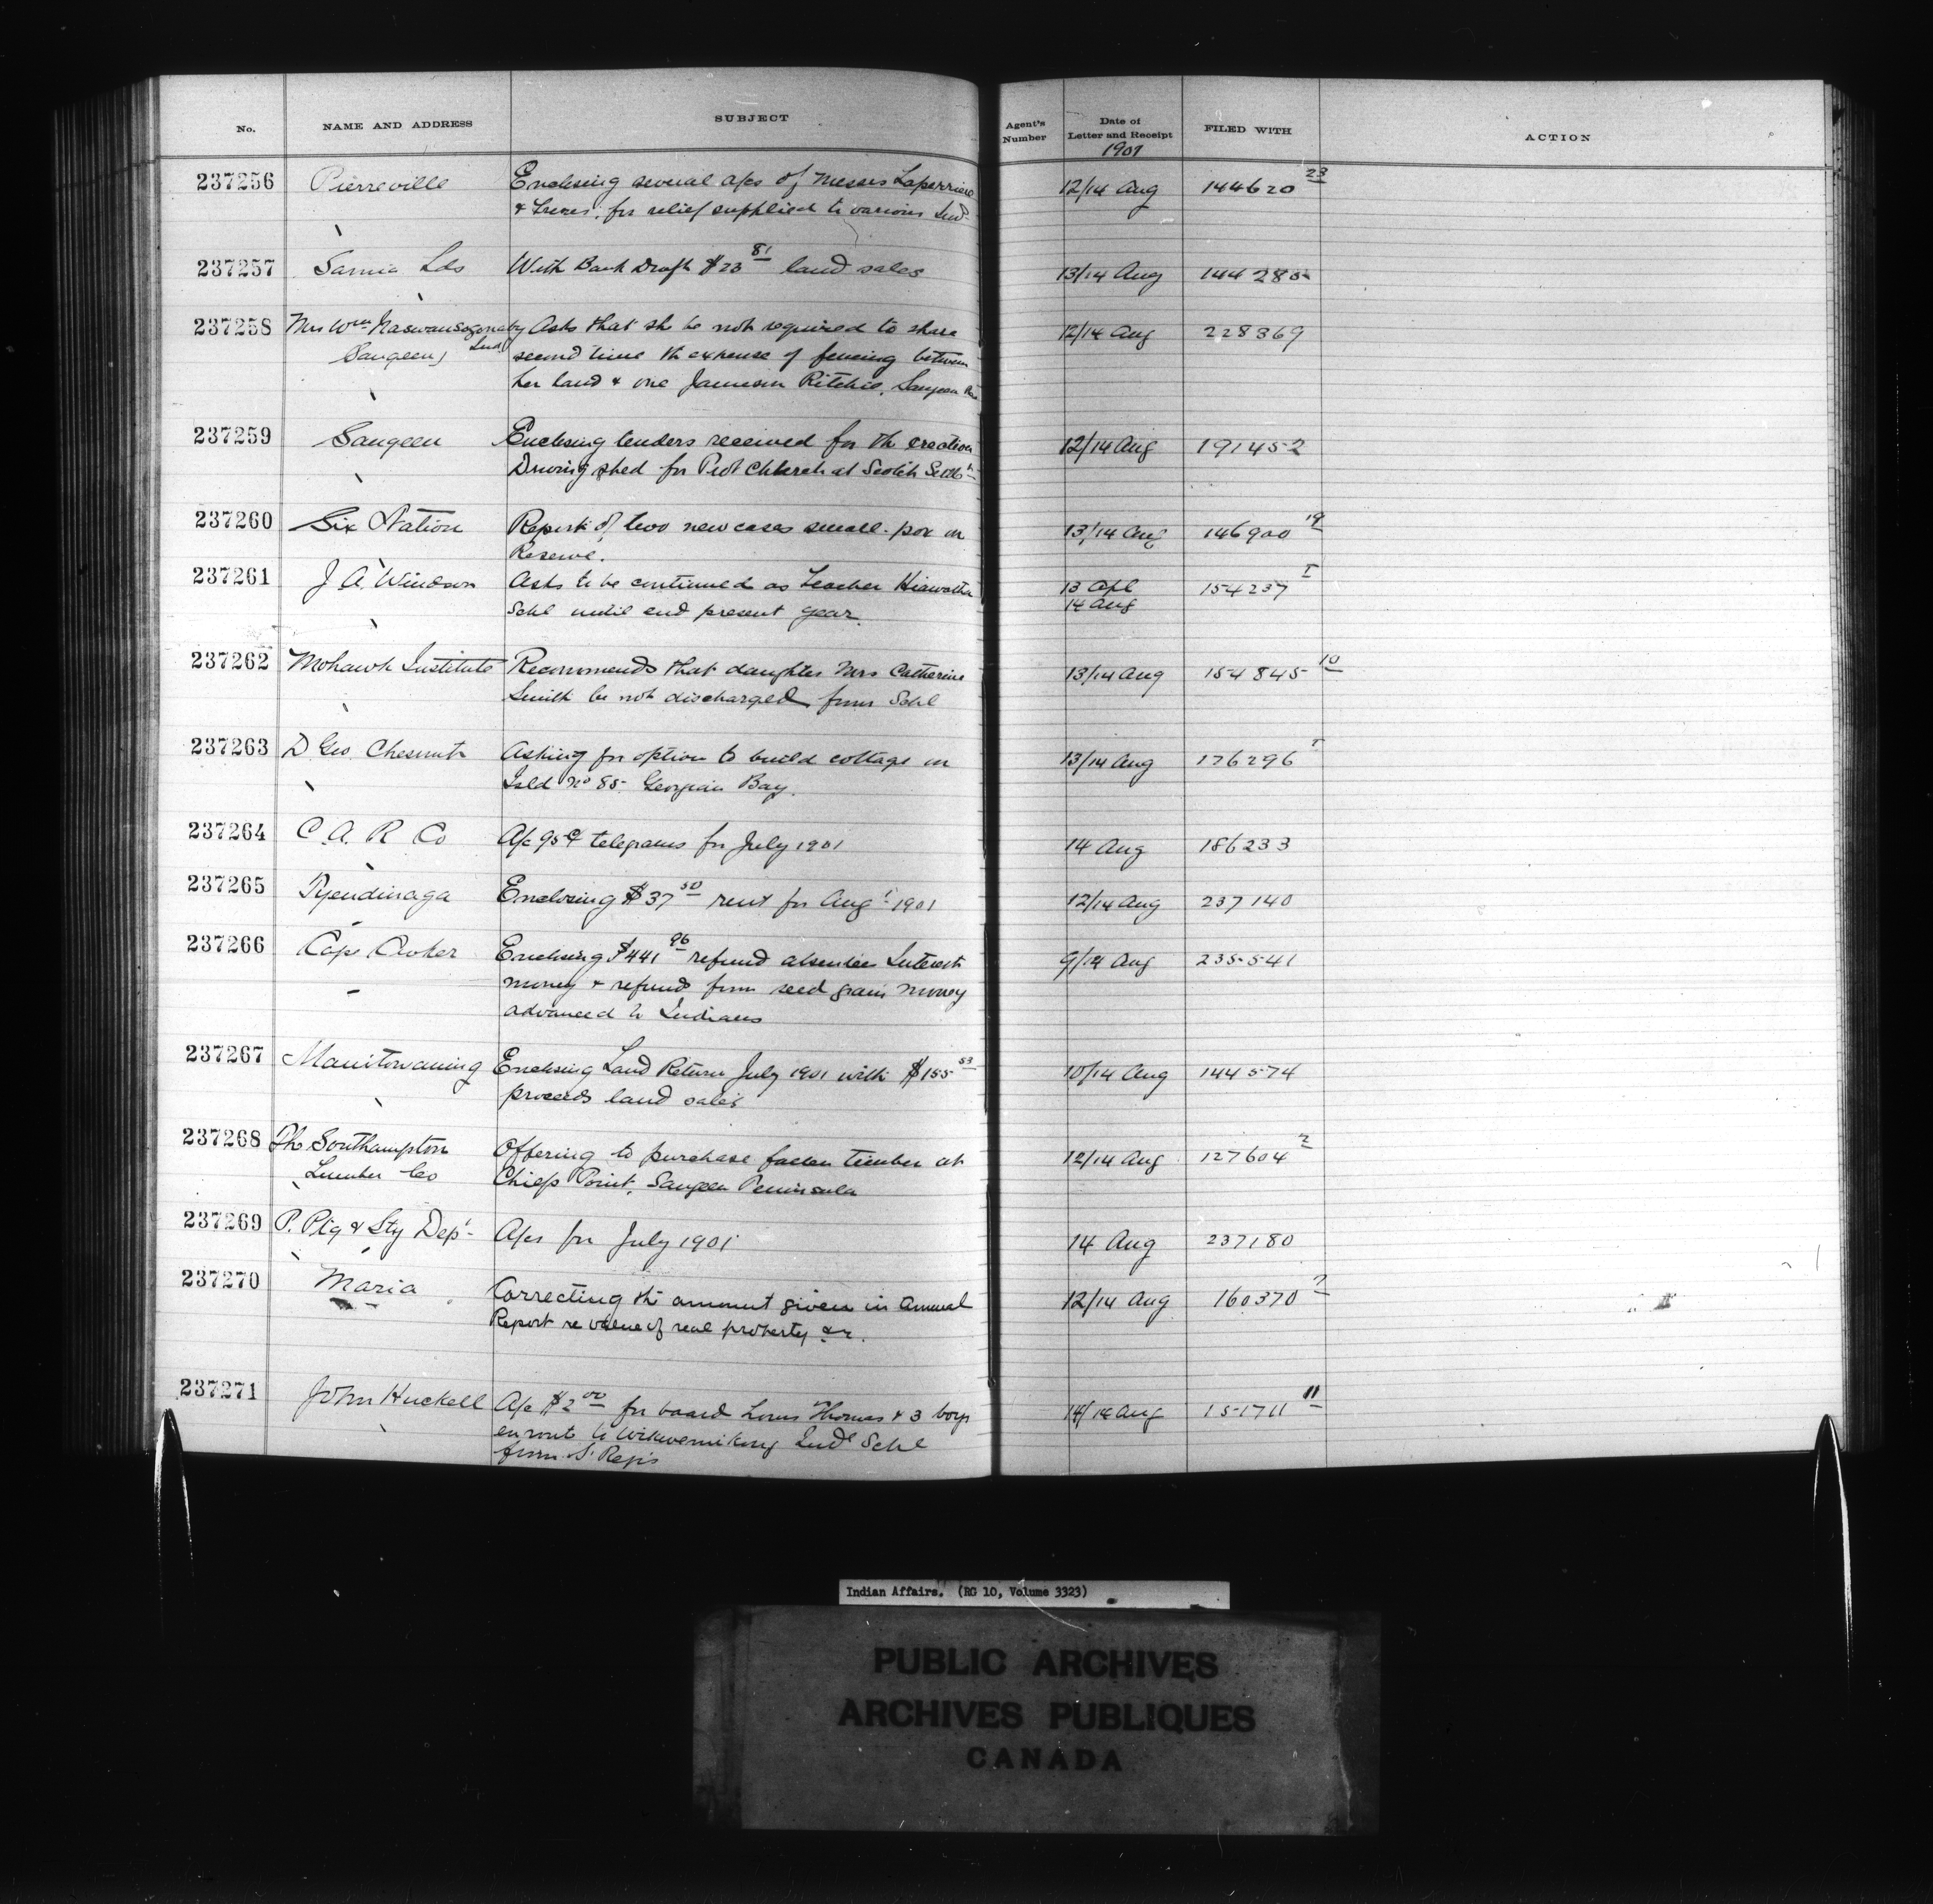 No. NAME AND ADDRESS SUBJECT Agent's Number Date of Letter and Receipt FILED WITH ACTION
1901
237256 Pierreville Enclosing several a/cs of Messrs Laperriere 12/14 Aug 144620 23
& Freres, for relief supplied to various Inds
237257 Sarnia Lds With Bank Draft $23 81 land sales 13/14 Aug 144285
237258 Mrs Wm Asks that she be not required to share 12/14 Aug 228369
Saugeen Ind second time the expense of fencing between
her land & one Jameson Ritchie, Saugeen Res
237259 Saugeen Enclosing tenders received for the erection 12/14 Aug 191452
Driving shed for Prot Church at Scotch Settlt
237260 Six Nation Report of two new cases small-pox on 13/14 Aug 146900 19
Reserve.
237261 J A Windsor Asks to be continued as teacher Hiawatha 13 Apl 154237 I
Schl until end present year. 14 Aug
237262 Mohawk Institute Recommends that daughter Mrs Catherine 13/14 Aug 154845 10
Smith be not discharged from Schl
237263 D Geo. Chesnut Asking for option to build cottage on 13/14 Aug 176296 I
Isld No 85 Georgian Bay.
237264 C. A. R Co A/c 95¢ telegrams for July 1901 14 Aug 186233
237265 Tyendinaga Enclosing $37 50 rent for Augt 1901 12/14 Aug 237140
237266 Cape Croker Enclosing $441 96 refund absentee Interest 9/14 Aug 235541
money & refunds from seed grain money
advanced to Indians
237267 Manitowaning Enclosing Land Return July 1901 with $155 53 10/14 Aug 144574
proceeds land sales
237268 The Southampton Offering to purchase fallen timber at 12/14 Aug 127604 2
Lumber Co Chiefs Point, Saugeen Peninsula
237269 P. Ptg & Sty Dept A/cs for July 1901 14 Aug 237180
237270 Maria Correcting the amount given in Annual 12/14 Aug 160370 2
Report re value of real property &c.
237271 John Huckell A/c $2 00 for board Louis Thomas & 3 boys 14/14 Aug 151711 11
en route to Wikwemikong Indl Schl
from St Regis
Indian Affairs. (RG 10, Volume 3323)
PUBLIC ARCHIVES
ARCHIVES PUBLIQUES
CANADA